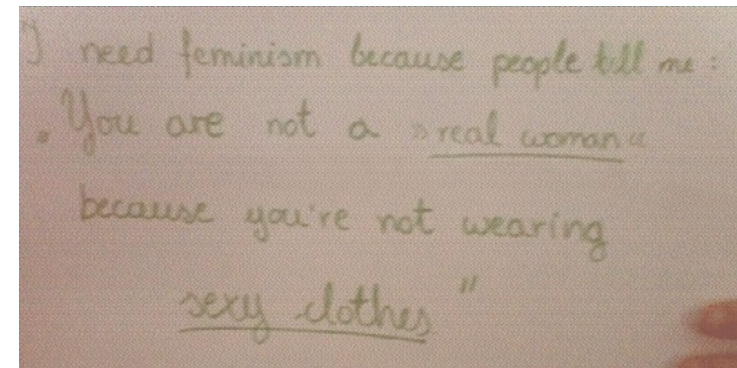 I need feminism because people tell me :
„You are not a »real woman«
because you're not wearing
sexy clothes"